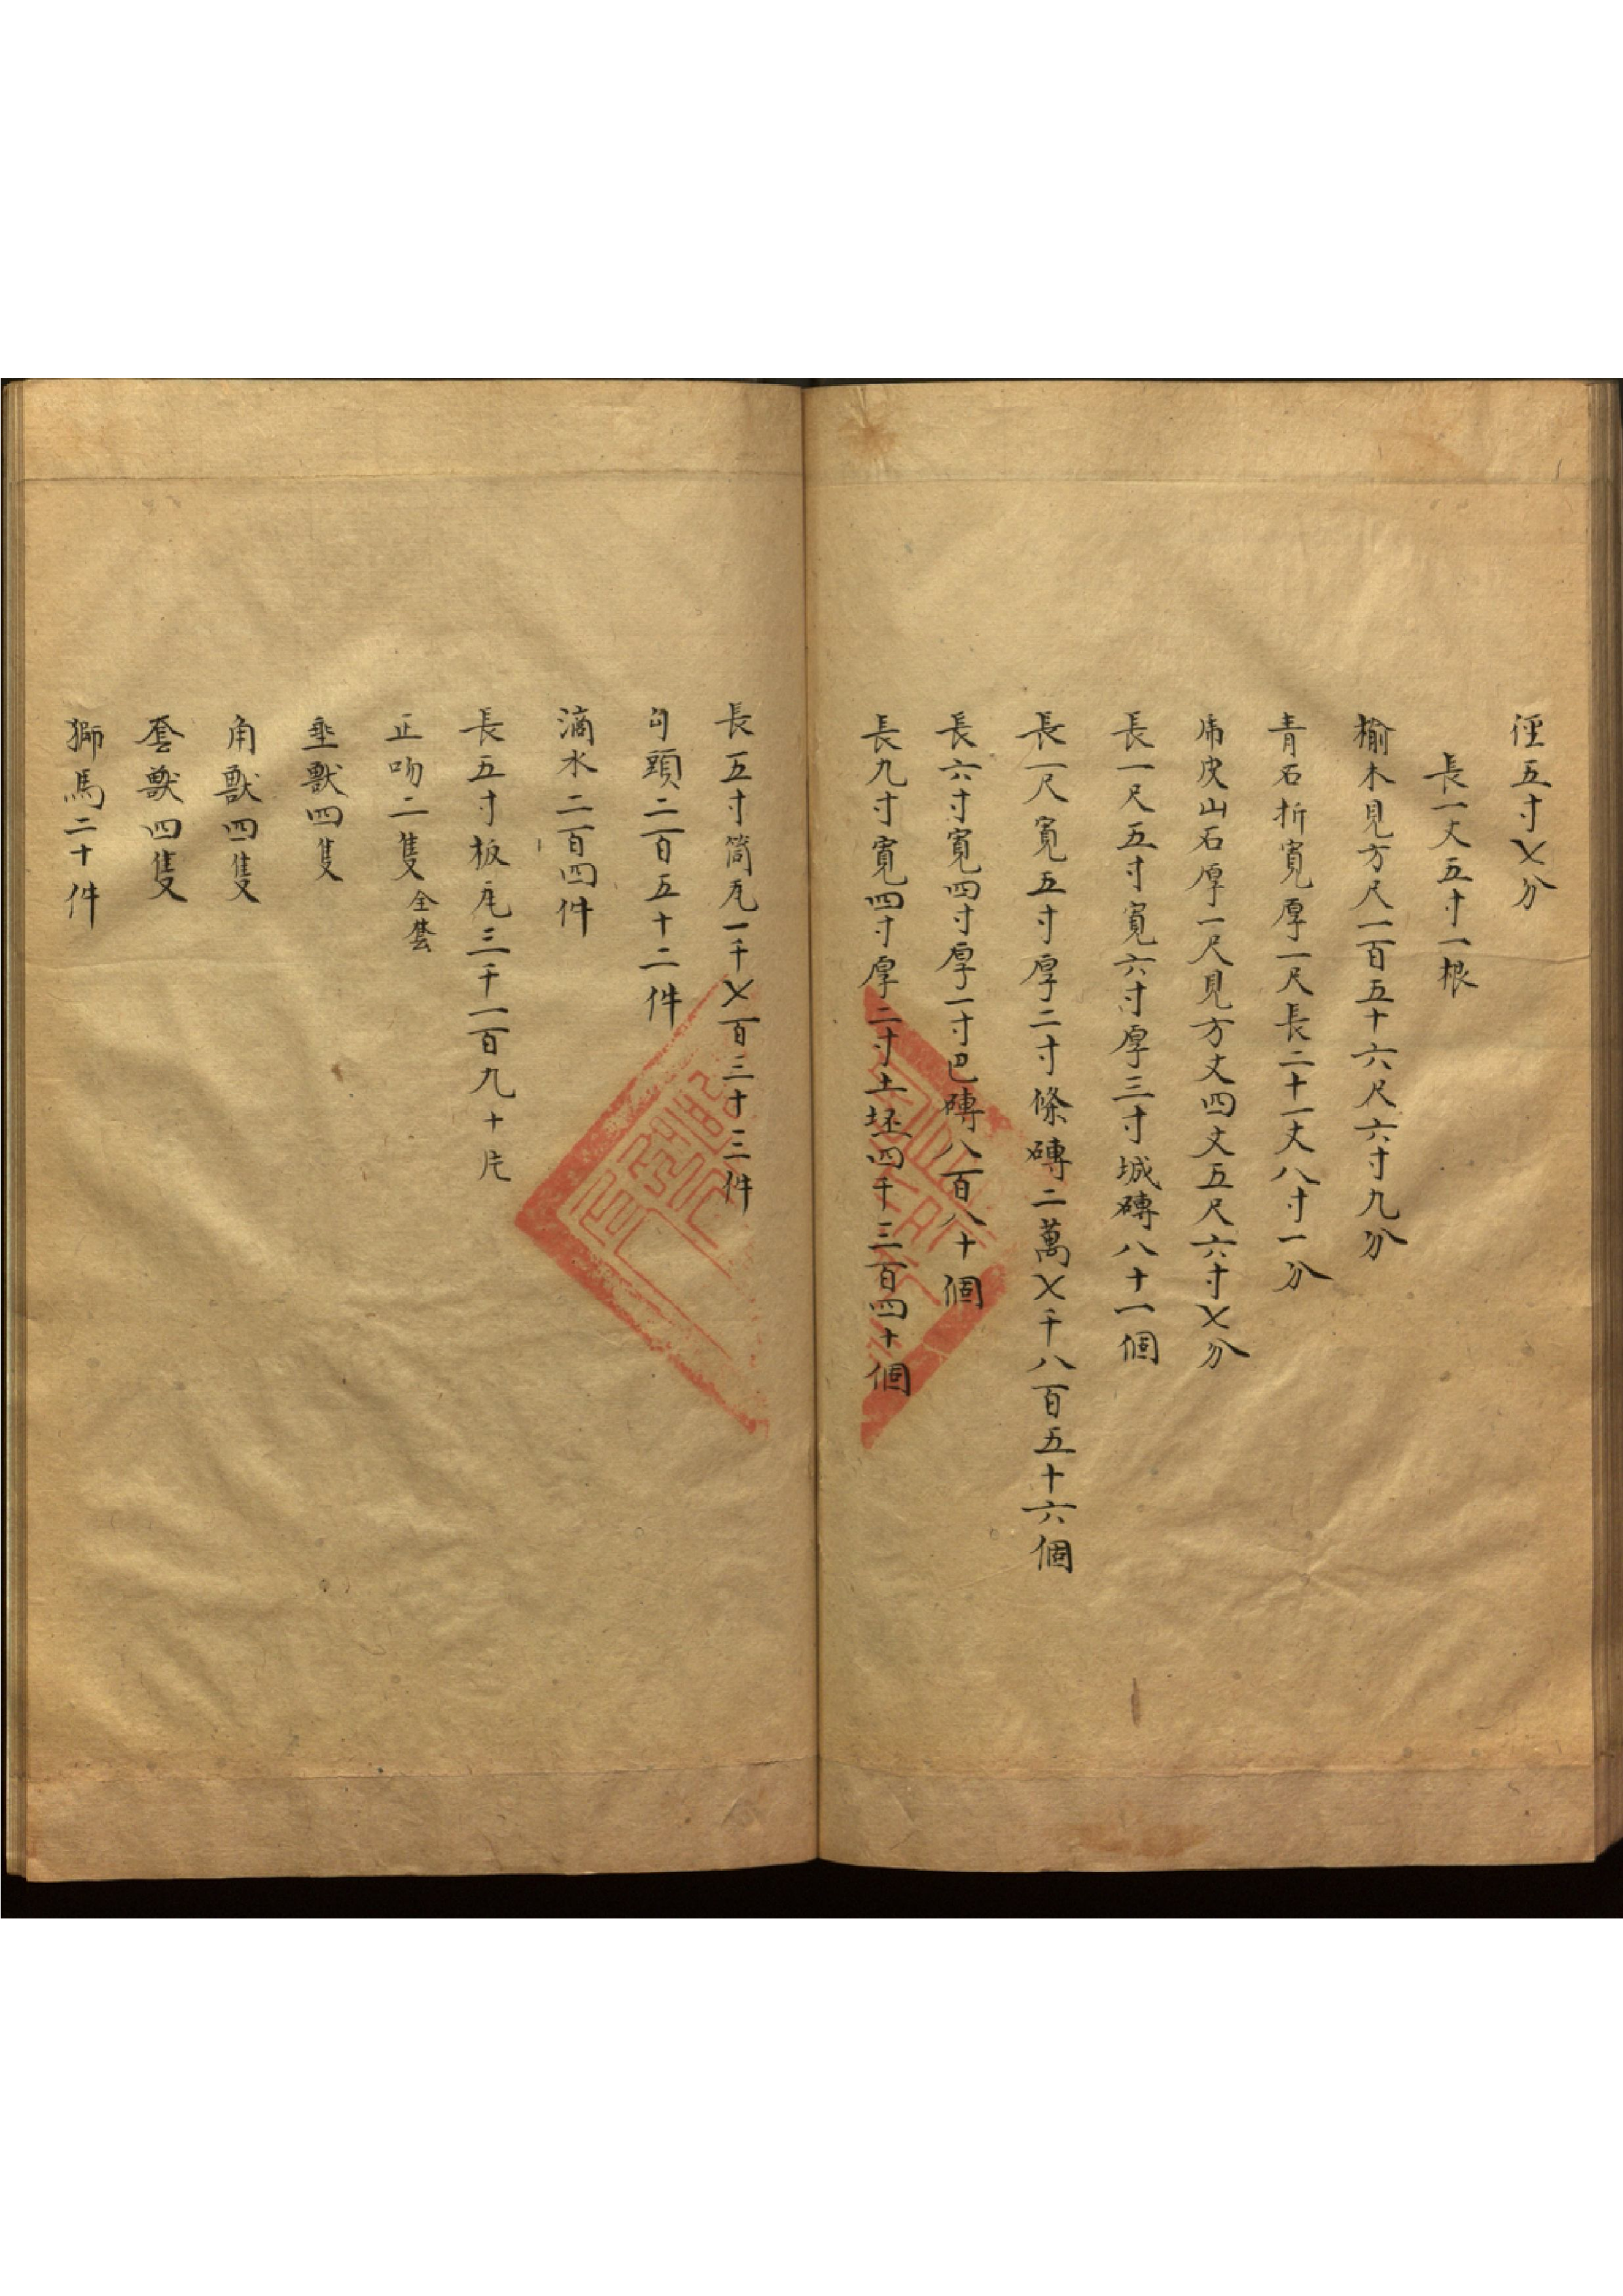 徑五寸乂分
長一丈五寸一根
榆木見方尺一百五十六尺六寸九分
青石折寬厚一尺長二十一丈八寸一分
虎皮山石厚一尺見方丈四丈五尺六寸乂分
長一尺五寸寬六寸厚三寸城磚八十一個
長一尺寬五寸厚二寸條磚二萬乂千八百五十六個
長六寸寬四寸厚一寸巴磚八百八十個
長九寸寬四寸厚二寸土坯四千三百四十個
長五寸筒瓦一千乂百三十三件
勾頭二百五十二件
滴水二百四件
長五寸板瓦三千一百九十片
正吻二隻全套
垂獸四隻
角獸四隻
套獸四隻
獅馬二十件